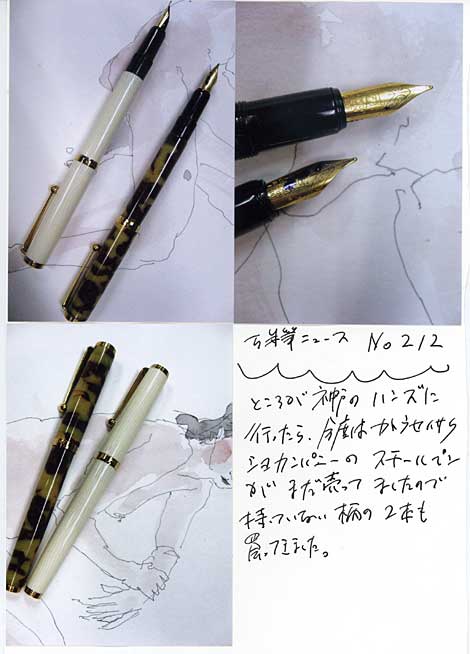 万年筆ニュース No 212
ところが神戸のハンズに
行ったら、今度はカトウセイサク
ショカンパニーのスチールペン
がまだ売ってましたので
持っていない柄の2本も
買ってきました。